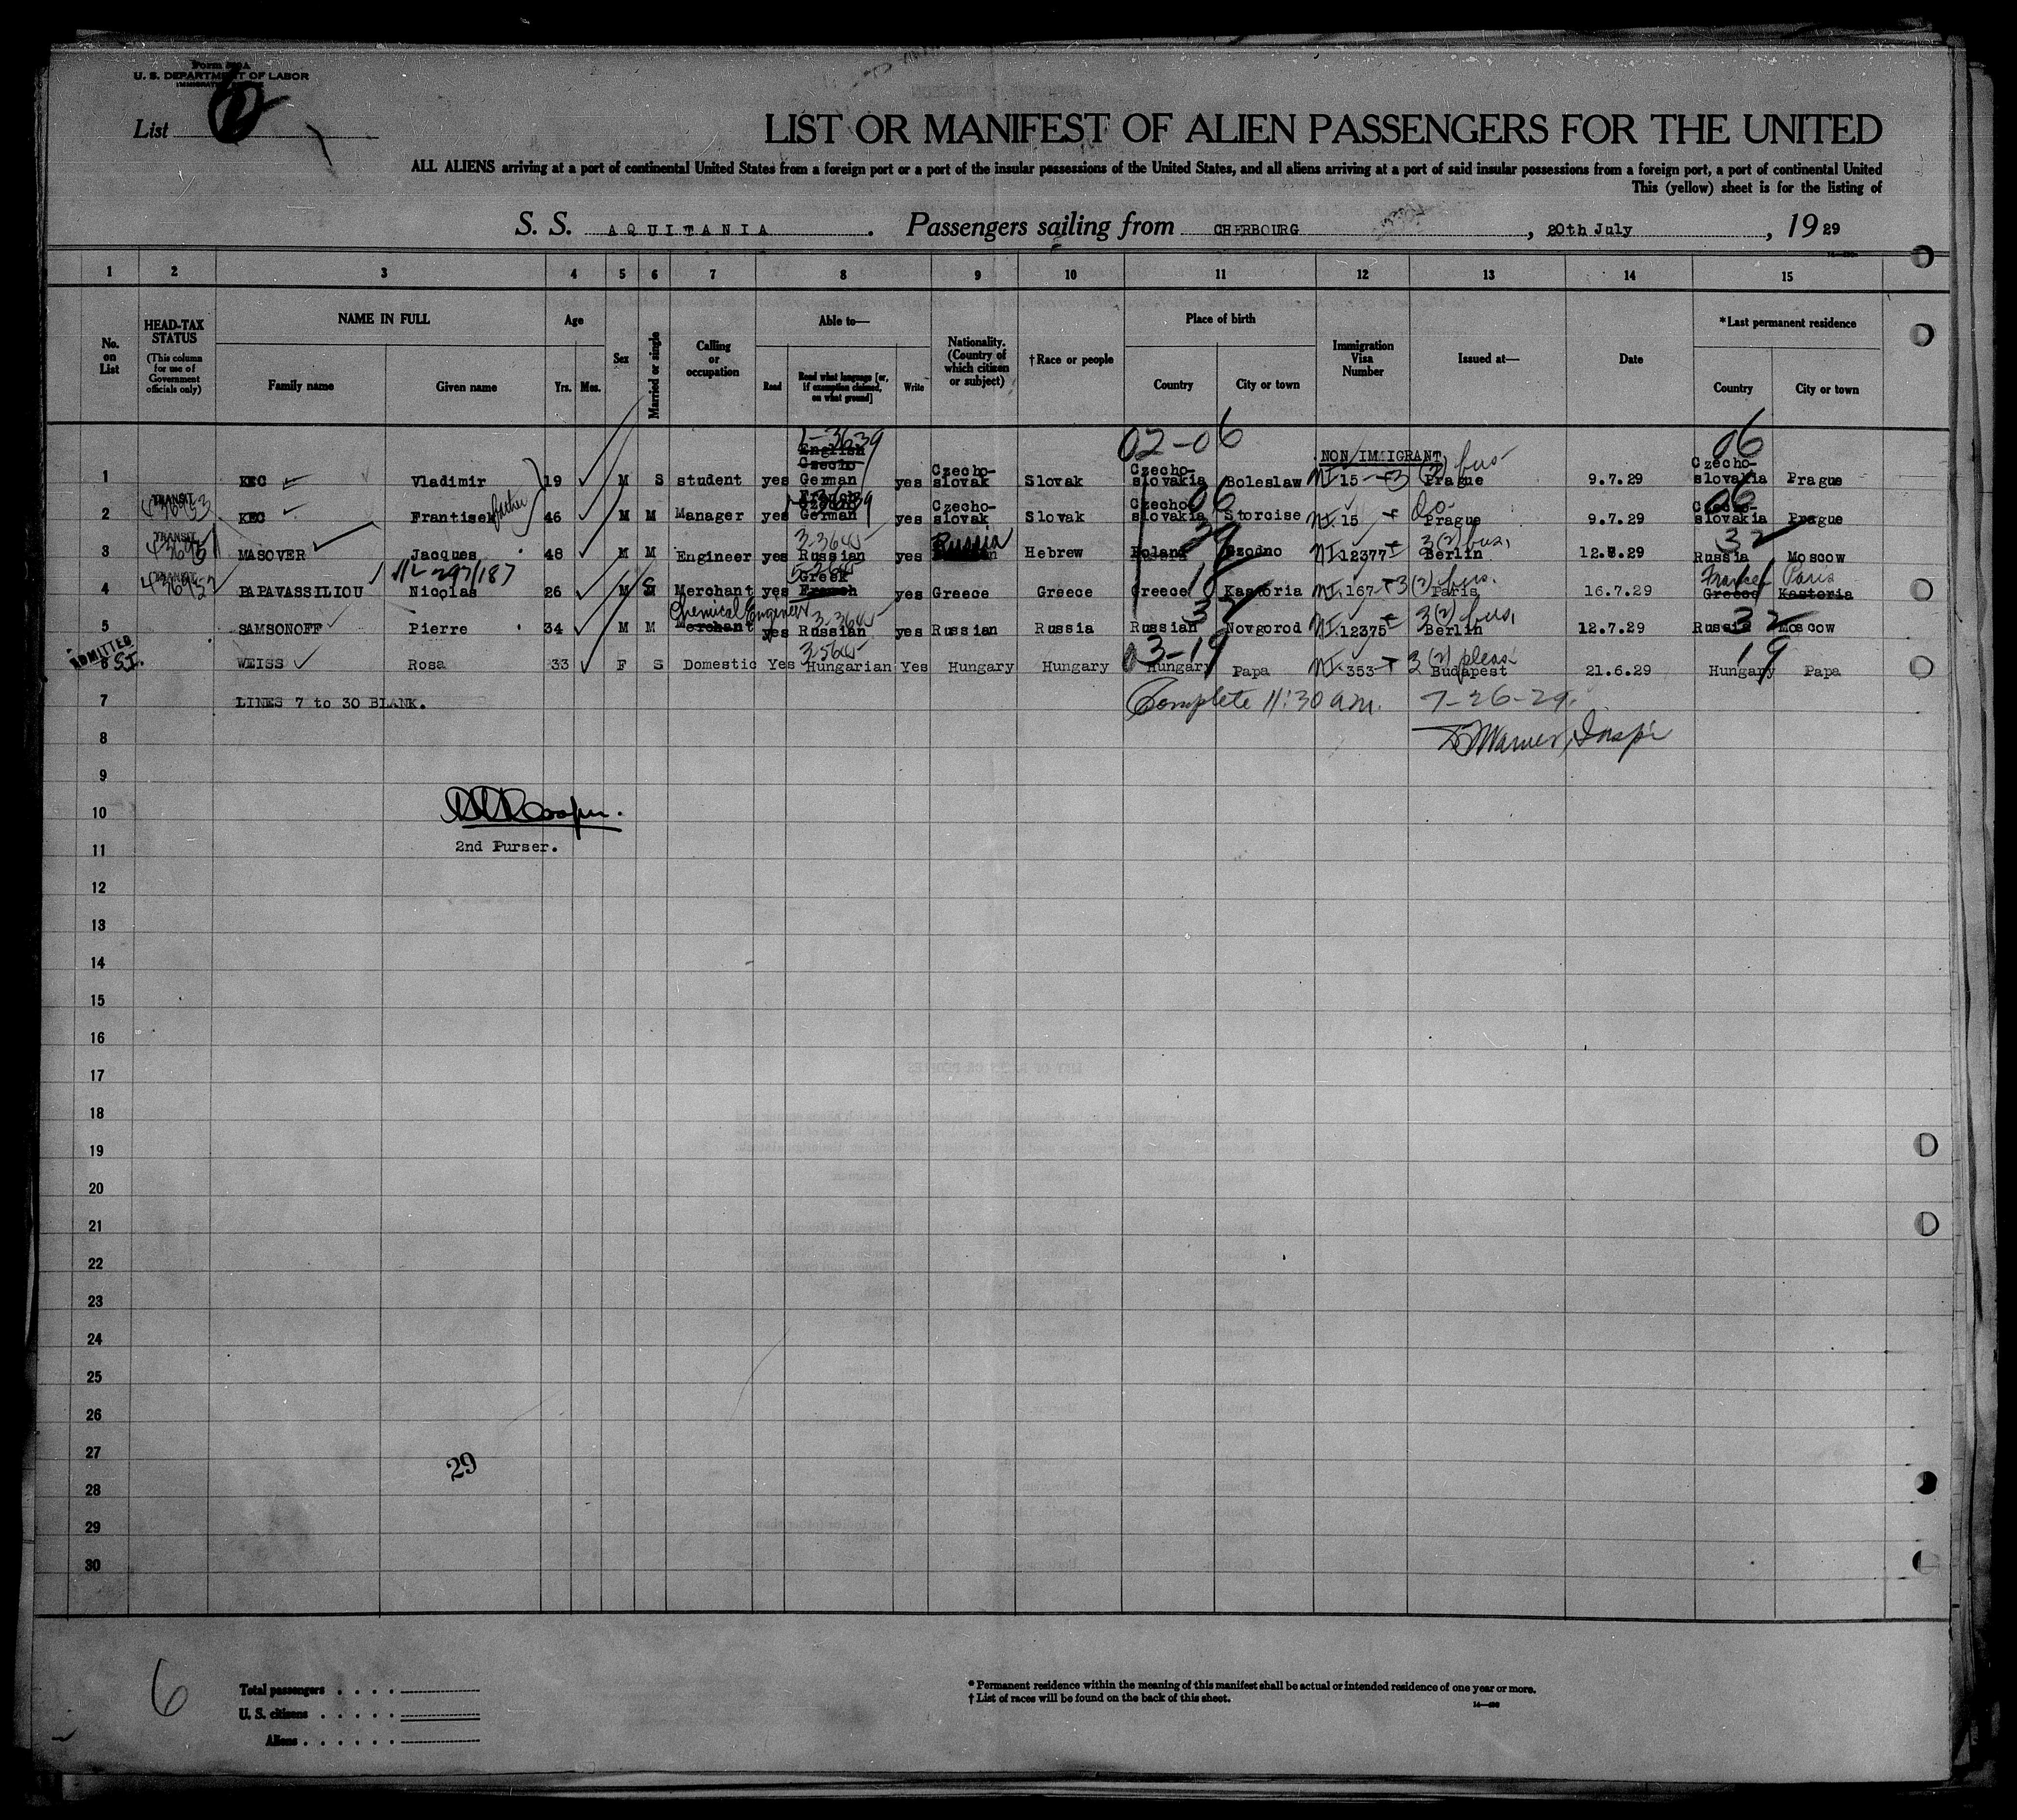 U. S. DEPARTMENT OF LABOR
List
LIST OR MANIFEST OF ALIEN PASSENGERS FOR THE UNITED
ALL ALIENS arriving at a port of continental United States from a foreign port or a port of the insular possessions of the United States, and all aliens arriving at a port of said insular possessions from a foreign port, a port of continental United
This (yellow) sheet is for the listing of
S. S. AQUITANIA . Passengers sailing from CHERBOURG , 20th July , 19 29
1 2 3 4 5 6 7 8 9 10 11 12 13 14 15
No. on List
HEAD-TAX STATUS (This column for use of Government officials only)
NAME IN FULL Family name Given name
Age Yrs. Mos.
Sex
Married or single
Calling or occupation
Able to— Read Read what language [or, if exemption claimed, on what ground] Write
Nationality. (Country of which citizen or subject)
†Race or people
Place of birth Country City or town
Immigration Visa Number
Issued at—
Date
*Last permanent residence Country City or town
02-06 06
NON IMMIGRANT
1 KEC Vladimir 19 M S student yes English Czecho German yes Czecho-slovak Slovak Czecho-slovakia Boleslaw NI 15 Prague 9.7.29 Czecho-slovakia Prague
2 TRANSIT KEC Frantisek father 46 M M Manager yes German yes Czecho-slovak Slovak Czecho-slovakia Storcise NI 15 Do Prague 9.7.29 Czecho-slovakia Prague
3 TRANSIT MASOVER Jacques 48 M M Engineer yes Russian yes Russia Hebrew Poland NI 12377 3(2) bus. Berlin 12.8.29 Russia Moscow
4 TRANSIT PAPAVASSILIOU Nicolas 26 M S Merchant yes Greek French yes Greece Greece Greece Kastoria NI 167 3(2) bus. Paris 16.7.29 France Paris Greece Kastoria
5 SAMSONOFF Pierre 34 M M Chemical Engineer Merchant yes Russian yes Russian Russia Russian Novgorod NI 12375 3(2) bus. Berlin 12.7.29 Russia Moscow
6 ADMITTED S.I. WEISS Rosa 33 F S Domestic Yes Hungarian Yes Hungary Hungary 03-19 Hungary Papa NI 353 3(2) pleas. Budapest 21.6.29 19 Hungary Papa
7 LINES 7 to 30 BLANK. Complete 11:30 a.m. 7-26-29.
8
9
10
11 2nd Purser.
12
13
14
15
16
17
18
19
20
21
22
23
24
25
26
27
29
28
29
30
6
Total passengers
U. S. citizens
Aliens
* Permanent residence within the meaning of this manifest shall be actual or intended residence of one year or more.
† List of races will be found on the back of this sheet.